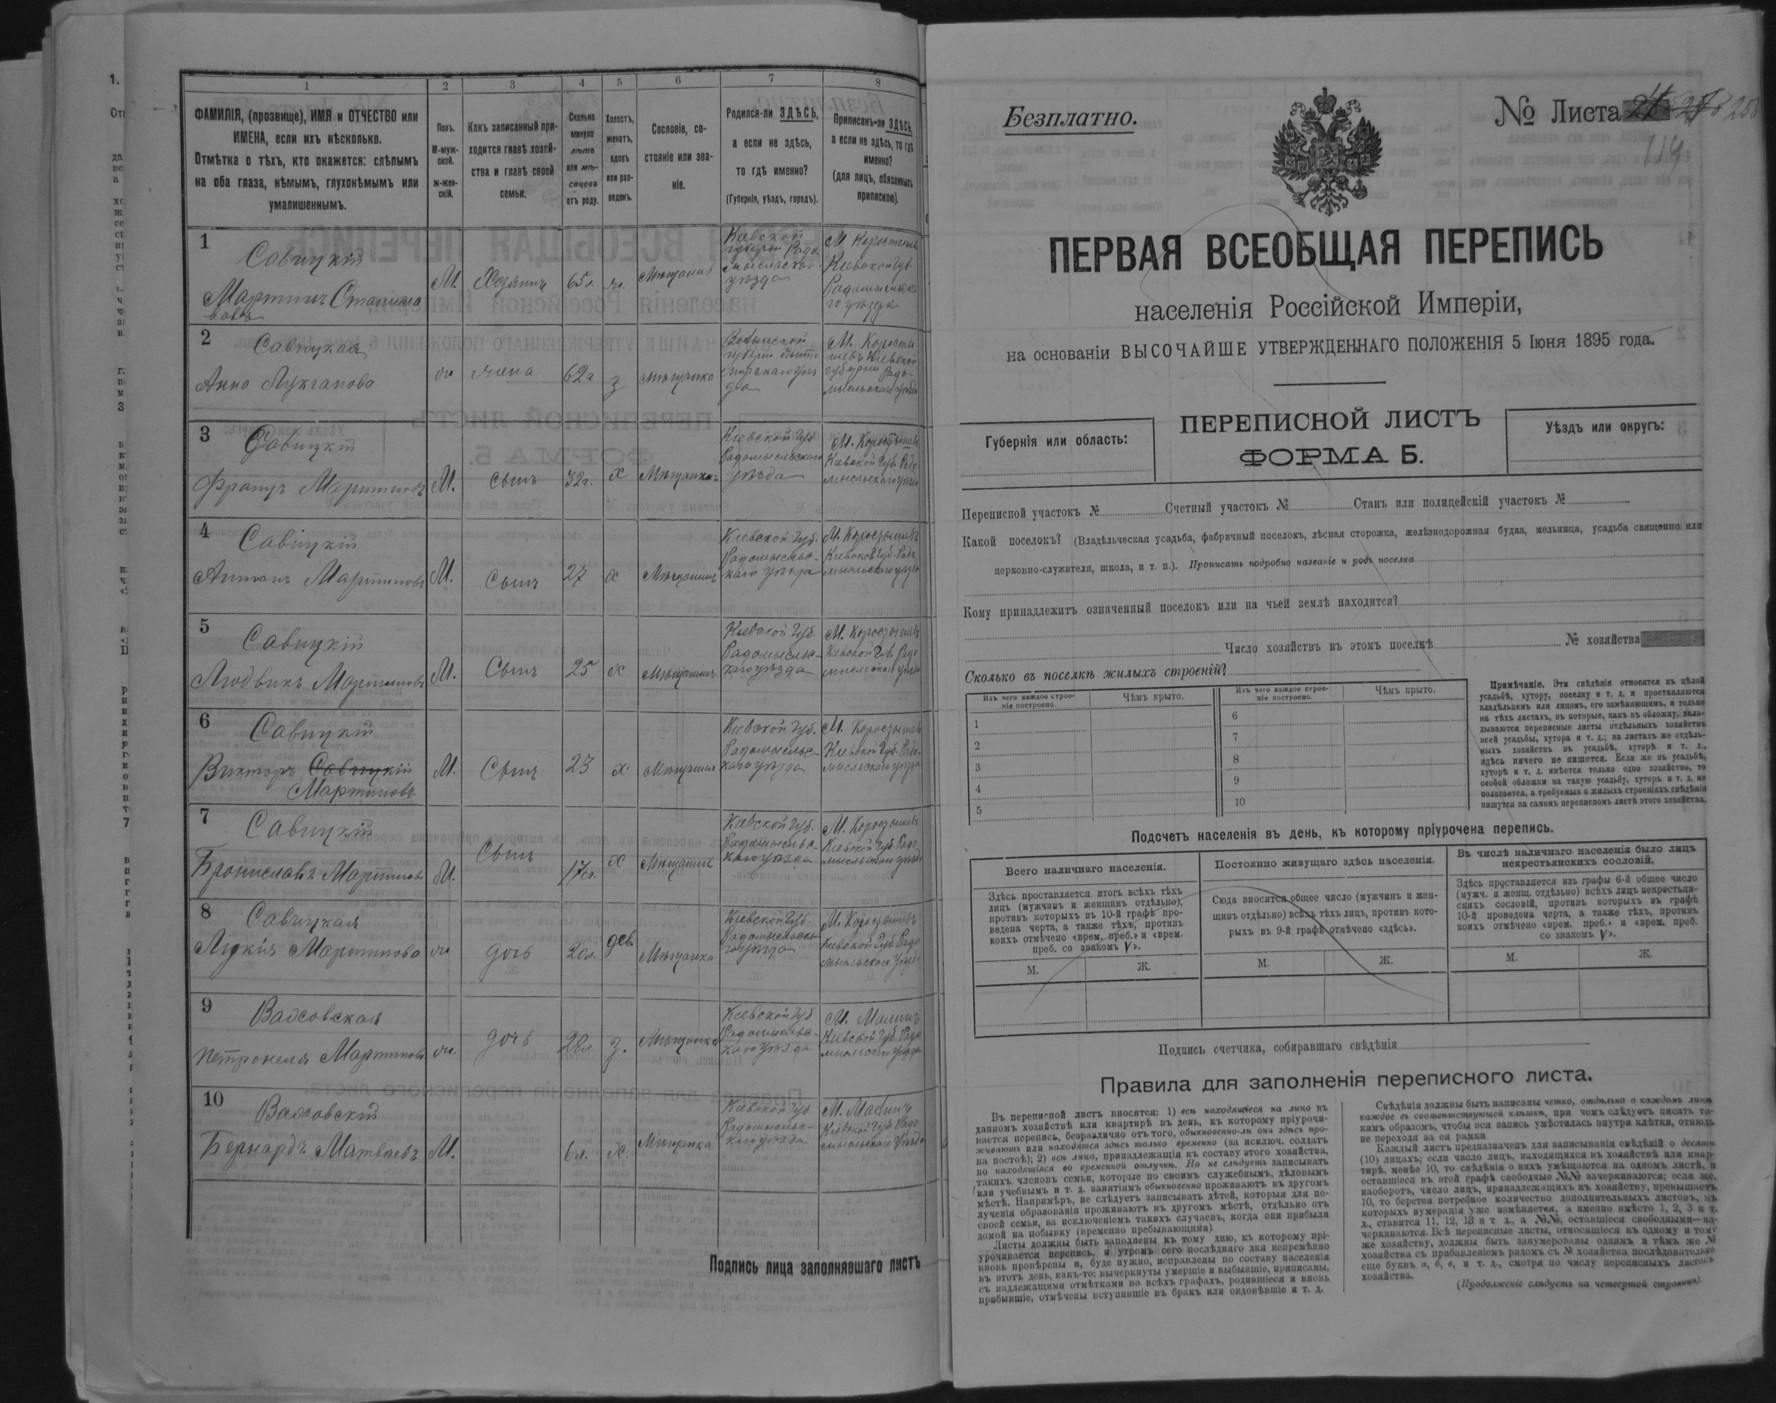 1 2 3 4 5 6 7 8
ФАМИЛІЯ, (прозвище), ИМЯ и ОТЧЕСТВО или
ИМЕНА, если ихъ нѣсколько.
Отмѣтка о тѣхъ, кто окажется: слѣпымъ
на оба глаза, нѣмымъ, глухонѣмымъ или
умалишеннымъ.
Полъ.
М-муж-
ской.
ж-жен-
скій.
Какъ записанный при-
ходится главѣ хозяй-
ства и главѣ своей
семьи.
Сколько
минуло
лѣтъ
или мѣ-
сяцевъ
отъ роду.
Холостъ,
женатъ,
вдовъ
или раз-
веденъ.
Сословіе, со-
стояніе или зва-
ніе.
Родился-ли ЗДѢСЬ,
а если не здѣсь,
то гдѣ именно?
(Губернія, уѣздъ, городъ).
Приписанъ-ли ЗДѢСЬ,
а если не здѣсь, то гдѣ
именно?
(для лицъ, обязанныхъ
припискою).
1
Савицкій
Мартинъ Станисла
вовъ
М.
Хозяинъ
65л.
Мѣщанинъ
Кіевской
губерніи Радо
мысльскаго
уѣзда
М. Коростышевъ
Кіевской Губ.
Радомысльска
го уѣзда
2
Савицкая
Анна
жена
62
з
Мѣщанка
Волынской
губерніи
М. Корости
шевъ Кіевской
губерніи Радо-
мысльскаго уѣзда
3
Савицкій
Францъ Мартиновъ
М.
сынъ
32г.
х
Кіевской Губ.
Радомысльскаго
уѣзда
М. Коростышевъ
Кіевской Губ. Радо
мысльскаго уѣзда
4
Савицкій
Антонъ Мартиновъ
М.
Сынъ
27
х
Мѣщанинъ
Кіевской Губ.
Радомысльс-
каго уѣзда
М. Коростышевъ
Кіевской Губ. Радо
мысльскаго уѣзда
5
Савицкій
Людвикъ Мартиновъ
М.
Сынъ
25
х
Мѣщанинъ
Кіевской Губ.
Радомысльс-
каго уѣзда
М. Коростышевъ
Кіевской Губ. Радо
мысльскаго уѣзда
6
Савицкій
Викторъ Савицкій
Мартиновъ
М.
Сынъ
23
х
Мѣщанинъ
Кіевской Губ.
Радомысльс-
каго уѣзда
М. Коростышевъ
Кіевской Губ. Радо-
мысльскаго уѣзда
7
Савицкій
Брониславъ Мартиновъ
М.
Сынъ
17л.
х
Мѣщанинъ
Кіевской Губ.
Радомысльс-
каго уѣзда
М. Коростышевъ
Кіевской Губ. Радо-
мысльскаго уѣзда
8
Савицкая
Мартинова
дочь
20л.
дев.
Мѣщанка
Кіевской Губ.
Радомысльска
го уѣзда
М. Коростышевъ
Кіевской Губ. Радо
мысльскаго уѣзда
9
Петронеля Мартинова
дочь
28л.
з.
Мѣщанка
Кіевской Губ
Радомысльс-
каго уѣзда
М. Малинъ
Кіевской Губ. Радо
мысльскаго уѣзда
10
Бернардъ Матвѣевъ
М.
6л.
х.
Кіевской Губ
Радомысльс-
каго уѣзда
Кіевской Губ. Радо
мысльскаго уѣзда
Подпись лица заполнявшаго листъ
Безплатно.
№ Листа
119
ПЕРВАЯ ВСЕОБЩАЯ ПЕРЕПИСЬ
населенія Россійской Имперіи,
на основаніи ВЫСОЧАЙШЕ УТВЕРЖДЕННАГО ПОЛОЖЕНІЯ 5 Іюня 1895 года.
Губернія или область:
ПЕРЕПИСНОЙ ЛИСТЪ
ФОРМА Б.
Уѣздъ или округъ:
Переписной участокъ № Счетный участокъ № Станъ или полицейскій участокъ №
Какой поселокъ? (Владѣльческая усадьба, фабричный поселокъ, лѣсная сторожка, желѣзнодорожная будка, мельница, усадьба священно или
церковно-служителя, школа, и т. п.). Прописать подробно названіе и родъ поселка
Кому принадлежитъ означенный поселокъ или на чьей землѣ находится?
Число хозяйствъ въ этомъ поселкѣ № хозяйства
Сколько въ поселкѣ жилыхъ строеній?
Изъ чего каждое строе-
ніе построено.
Чѣмъ крыто.
Изъ чего каждое строе-
ніе построено.
Чѣмъ крыто.
1 6
2 7
3 8
4 9
5 10
Примѣчаніе. Эти свѣдѣнія относятся къ цѣлой
усадьбѣ, хутору, поселку и т. д. и проставляются
владѣльцемъ или лицомъ, его замѣняющимъ, и только
на тѣхъ листахъ, въ которые, какъ въ обложку, вкла-
дываются переписные листы отдѣльныхъ хозяйствъ
всей усадьбы, хутора и т. д.; на листахъ же отдѣль-
ныхъ хозяйствъ въ усадьбѣ, хуторѣ и т. д.,
здѣсь ничего не пишется. Если же въ усадьбѣ,
хуторѣ и т. д. имѣется только одно хозяйство, то
особой обложки на такую усадьбу, хуторъ и т. д. не
полагается, а требуемыя о жилыхъ строеніяхъ свѣдѣнія
пишутся на самомъ переписномъ листѣ этого хозяйства.
Подсчетъ населенія въ день, къ которому пріурочена перепись.
Всего наличнаго населенія.
Здѣсь проставляется итогъ всѣхъ тѣхъ
лицъ (мужчинъ и женщинъ отдѣльно),
противъ которыхъ въ 10-й графѣ про-
ведена черта, а также тѣхъ, противъ
коихъ отмѣчено «врем. преб.» и «врем.
преб. со знакомъ V».
Постоянно живущаго здѣсь населенія.
Сюда вносится общее число (мужчинъ и жен-
щинъ отдѣльно) всѣхъ тѣхъ лицъ, противъ кото-
рыхъ въ 9-й графѣ отмѣчено «здѣсь».
Въ числѣ наличнаго населенія было лицъ
некрестьянскихъ сословій.
Здѣсь проставляется изъ графы 6-й общее число
(мужч. и женщ. отдѣльно) всѣхъ лицъ некрестьян-
скихъ сословій, противъ которыхъ въ графѣ
10-й проведена черта, а также тѣхъ, противъ
коихъ отмѣчено «врем. преб.» и «врем. преб.
со знакомъ V».
М. Ж. М. Ж. М. Ж.
Подпись счетчика, собиравшаго свѣдѣнія
Правила для заполненія переписного листа.
Въ переписной листъ вносятся: 1) всѣ находящіеся на лицо въ
данномъ хозяйствѣ или квартирѣ въ день, къ которому пріурочи-
вается перепись, безразлично отъ того, обыкновенно-ли они здѣсь про-
живаютъ или находятся здѣсь только временно (за исключ. солдатъ
на постоѣ); 2) всѣ лица, принадлежащія къ составу этого хозяйства,
но находящіяся во временной отлучкѣ. Но не слѣдуетъ записывать
такихъ членовъ семьи, которые по своимъ служебнымъ, дѣловымъ
или учебнымъ и т. д. занятіямъ обыкновенно проживаютъ въ другомъ
мѣстѣ. Напримѣръ, не слѣдуетъ записывать дѣтей, которыя для по-
лученія образованія проживаютъ въ другомъ мѣстѣ, отдѣльно отъ
своей семьи, за исключеніемъ такихъ случаевъ, когда они прибыли
домой на побывку (временно пребывающими).
Листы должны быть заполнены къ тому дню, къ которому прі-
урочивается перепись, и утромъ сего послѣдняго дня непремѣнно
вновь провѣрены и, буде нужно, исправлены по составу населенія
въ этотъ день, какъ-то: вычеркнуты умершіе и выбывшіе, приписаны,
съ надлежащими отмѣтками во всѣхъ графахъ, родившіеся и вновь
прибывшіе, отмѣчены вступившіе въ бракъ или овдовѣвшіе и т. д.
Свѣдѣнія должны быть написаны четко, отдѣльно о каждомъ лицѣ
каждое въ соотвѣтствующей клѣткѣ, при чемъ слѣдуетъ писать та-
кимъ образомъ, чтобы вся запись умѣстилась внутри клѣтки, отнюдь
не переходя за ея рамки
Каждый листъ предназначенъ для записыванія свѣдѣній о десяти
(10) лицахъ; если число лицъ, находящихся въ хозяйствѣ или квар-
тирѣ, менѣе 10, то свѣдѣнія о нихъ умѣщаются на одномъ листѣ, и
оставшіеся въ этой графѣ свободные №№ зачеркиваются; если же,
наоборотъ, число лицъ, принадлежащихъ къ хозяйству, превышаетъ
10, то берется потребное количество дополнительныхъ листовъ, въ
которыхъ нумерація уже измѣняется, а именно вмѣсто 1, 2, 3 и т.
д., ставится 11, 12, 13 и т д., а №№, оставшіеся свободными—за-
черкиваются. Всѣ переписные листы, относящіеся къ одному и тому
же хозяйству, должны быть занумерованы однимъ и тѣмъ же №
хозяйства съ прибавленіемъ рядомъ съ № хозяйства послѣдовательно
еще буквъ а, б, в, и т. д., смотря по числу переписныхъ листовъ
хозяйства.
(Продолженіе слѣдуетъ на четвертой страницѣ).